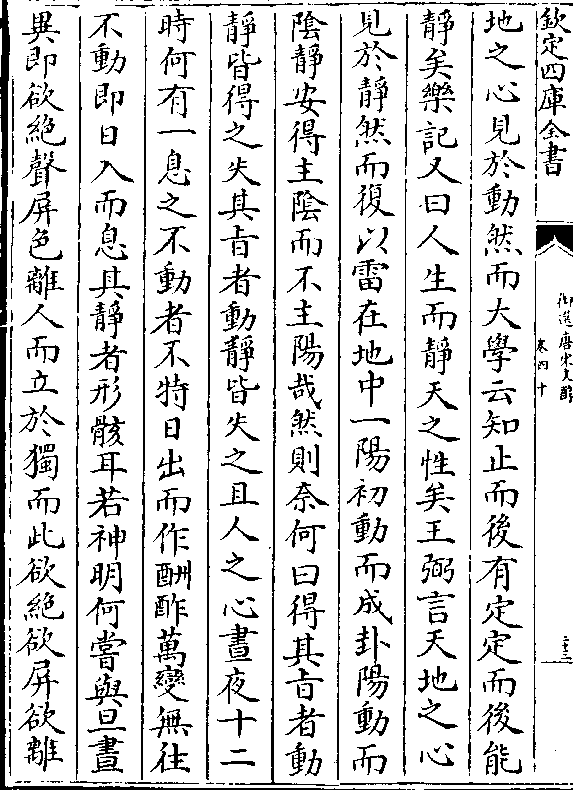 欽定四庫全書
御選唐宋文醇
卷四十
二十三
地之心見於動然而大學云知止而後有定定而後能
靜矣樂記又曰人生而靜天之性矣王弼言天地之心
見於靜然而復以雷在地中一陽初動而成卦陽動而
陰靜安得主陰而不主陽哉然則奈何曰得其旨者動
靜皆得之失其旨者動靜皆失之且人之心晝夜十二
時何有一息之不動者不特日出而作酬酢萬變無往
不動即日入而息其靜者形骸耳若神明何嘗與旦晝
異即欲絶聲屏色離人而立於獨而此欲絶欲屏欲離